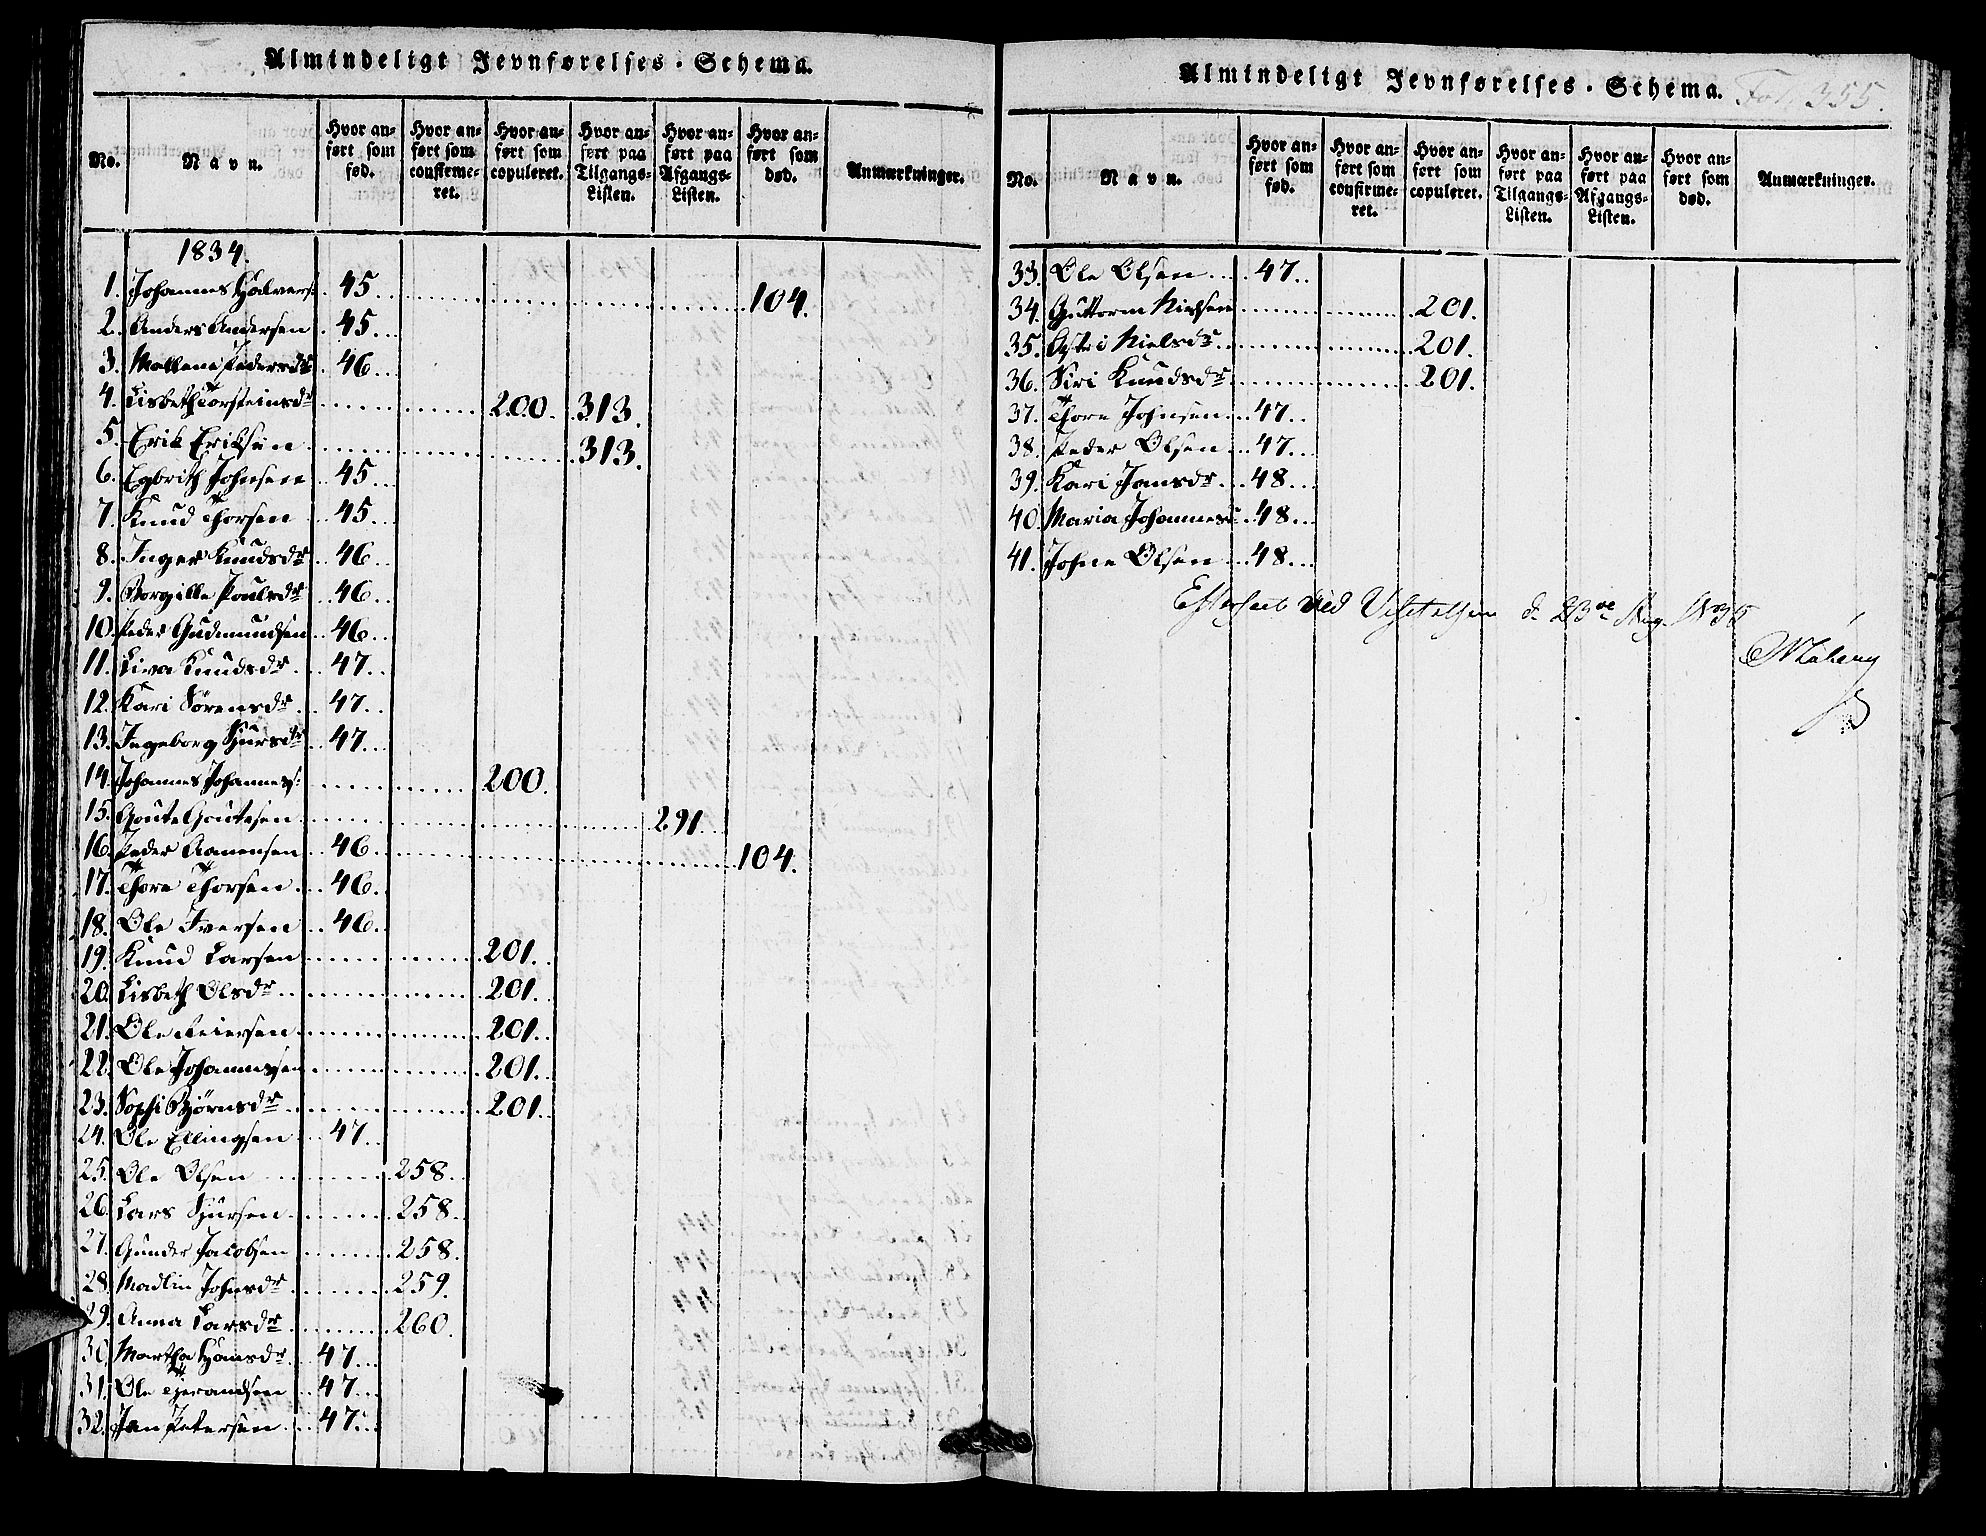 Almindeligt Jevnførelses-Schema.
No. Navn. Hvor anført som fød. Hvor anført som confirmeret. Hvor anført som copuleret. Hvor anført paa Tilgangs-Listen. Hvor anført paa Afgangs-Listen. Hvor anført som død. Anmærkninger.
1834.
1. Johannes Halvers: 45. 104.
2. Anders Andersen 45.
3. Mallene Pedersdr 46.
4. Lisbeth Torsteinsdr 200. 313.
5. Erik Eriksen 313.
6. Egbrith Johnsen 45.
7. Knud Thorsen 45.
8. Inger Knudsdr 46.
9. Borgille Poulsdr 46.
10. Peder Gudmundsen 46.
11. Liva Knudsdr 47.
12. Kari Sørensdr 47.
13. Ingeborg Sjursdr 47.
14. Johannes Johanness: 200.
15. Goute Goutesen 291.
16. Peder Aamensen 46. 104.
17. Thore Thorsen 46.
18. Ole Iversen 46.
19. Knud Larsen 201.
20. Lisbeth Olsdr 201.
21. Ole Peiersen 201.
22. Ole Johannessen 201.
23. Sophi Bjørnsdr 201.
24. Ole Ellingsen 47.
25. Ole Olsen 258.
26. Lars Sjursen 258.
27. Gunder Jacobsen 258.
28. Madlin Johnsdr 259.
29. Anna Larsdr 260.
30. Martha Hansdr 47.
31. Ole Tjerandsen 47.
32. Jan Petersen 47.
Almindeligt Jevnførelses-Schema. Fol. 355.
No. Navn. Hvor anført som fød. Hvor anført som confirmeret. Hvor anført som copuleret. Hvor anført paa Tilgangs-Listen. Hvor anført paa Afgangs-Listen. Hvor anført som død. Anmærkninger.
33. Ole Olsen 47.
34. Guttorm Nielsen 201.
35. Astri Nielsdr 201.
36. Siri Knudsdr 201.
37. Thore Johnsen 47.
38. Peder Olsen 47.
39. Kari Jansdr 48.
40. Maria Johannesd 48.
41. Johne Olsen 48.
Efterseet ved Visitatsen d. 23de Aug. 1835